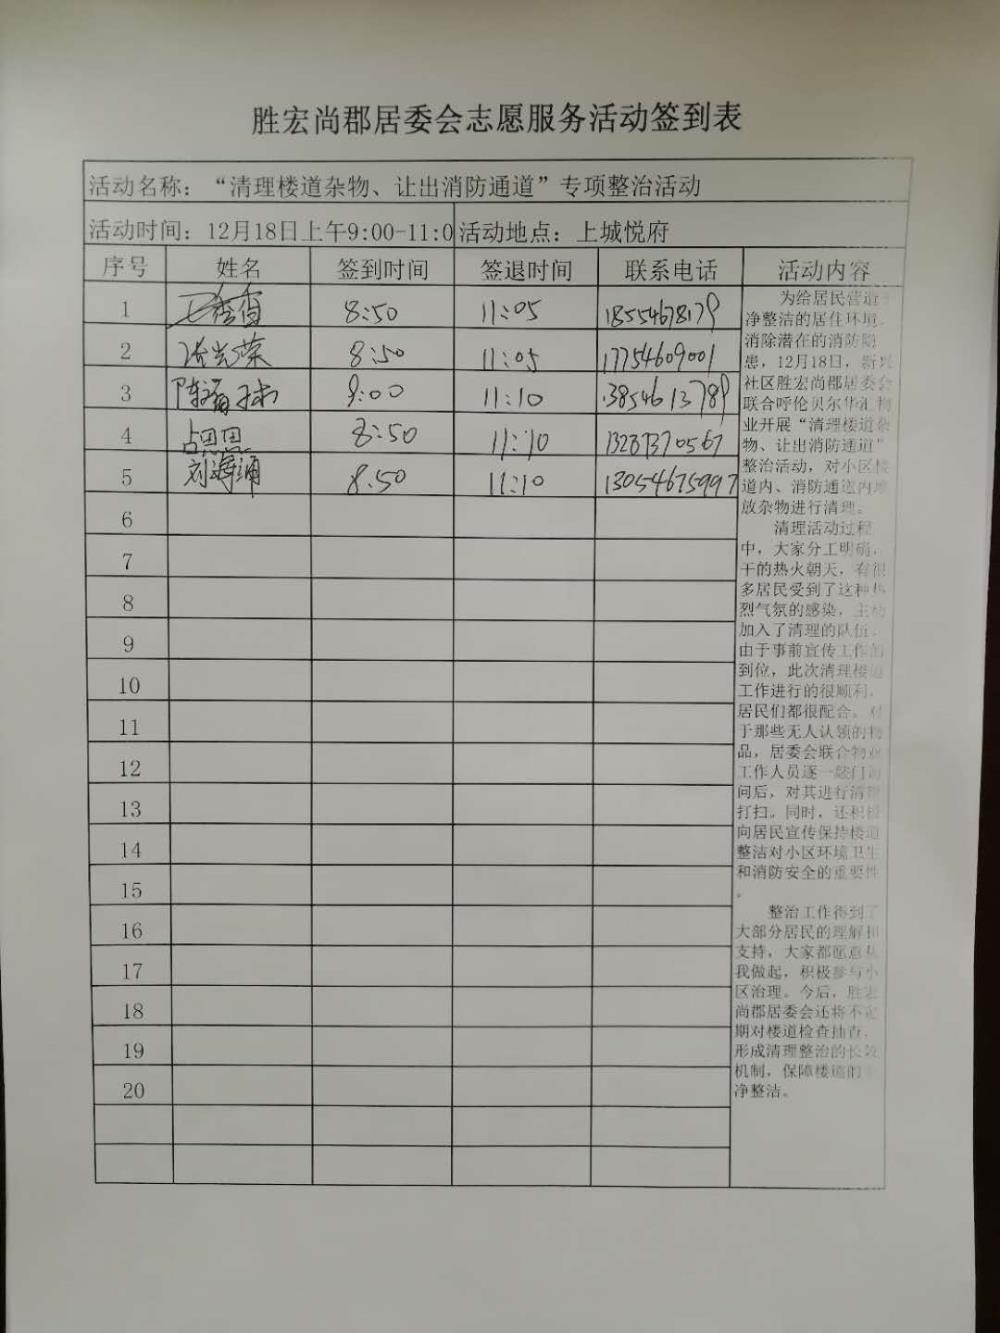 胜宏尚郡居委会志愿服务活动签到表
活动名称：“清理楼道杂物、让出消防通道”专项整治活动
活动时间：12月18日上午9:00-11:0 活动地点：上城悦府
序号 姓名 签到时间 签退时间 联系电话 活动内容
1 8:50 11:05 18554678179
2 张光荣 8:50 11:05 17754609001
3 9:00 11:10 13854613789
4 8:50 11:10 13287370567
5 刘海涌 8:50 11:10 13054675997
6
7
8
9
10
11
12
13
14
15
16
17
18
19
20
为给居民营造干
净整洁的居住环境，
消除潜在的消防隐
患，12月18日，新兴
社区胜宏尚郡居委会
联合呼伦贝尔华汇物
业开展“清理楼道杂
物、让出消防通道”
整治活动，对小区楼
道内、消防通道内堆
放杂物进行清理。
清理活动过程
中，大家分工明确，
干的热火朝天，有很
多居民受到了这种热
烈气氛的感染，主动
加入了清理的队伍。
由于事前宣传工作的
到位，此次清理楼道
工作进行的很顺利，
居民们都很配合。对
于那些无人认领的物
品，居委会联合物业
工作人员逐一敲门询
问后，对其进行清理
打扫。同时，还积极
向居民宣传保持楼道
整洁对小区环境卫生
和消防安全的重要性
。
整治工作得到了
大部分居民的理解和
支持，大家都愿意从
我做起，积极参与小
区治理。今后，胜宏
尚郡居委会还将不定
期对楼道检查抽查，
形成清理整治的长效
机制，保障楼道的干
净整洁。